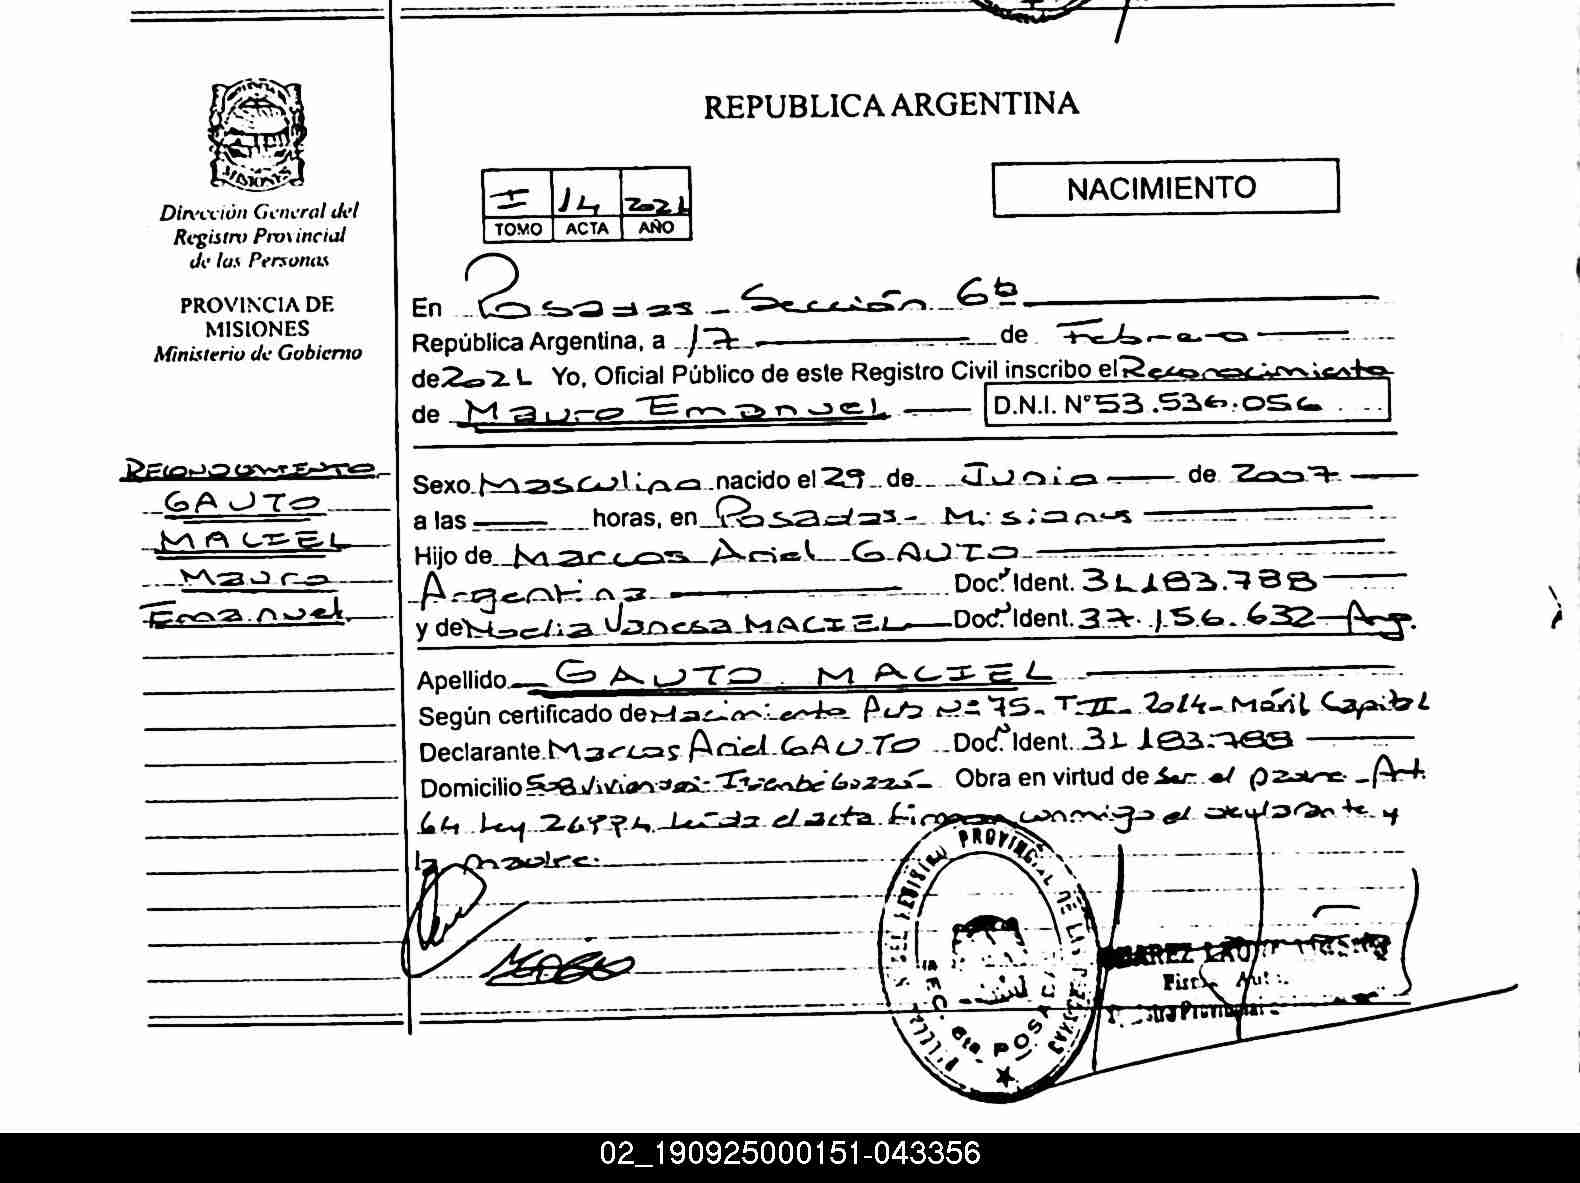 REPUBLICA ARGENTINA
MISIONES
Dirección General del
Registro Provincial
de las Personas
PROVINCIA DE
MISIONES
Ministerio de Gobierno
I 14 2021
TOMO ACTA AÑO
NACIMIENTO
En Posadas - Sección 6ta
República Argentina, a 17 de Febrero
de 2021 Yo, Oficial Público de este Registro Civil inscribo el Reconocimiento
de Mauro Emanuel D.N.I. N° 53.536.056
RECONOCIMIENTO
GAUTO
MACIEL
Mauro
Emanuel
Sexo Masculino nacido el 29 de Junio de 2007
a las horas, en Posadas - Misiones
Hijo de Marcos Ariel GAUTO
Argentina Doc. Ident. 31.183.788
y de Noelia Vanesa MACIEL Doc. Ident. 37.156.632 Arg.
Apellido GAUTO MACIEL
Según certificado de Nacimiento N° 75 - T-II - 2014 - Capital
Declarante Marcos Ariel GAUTO Doc. Ident. 31.183.788
Domicilio Obra en virtud de ser el padre - Art.
64 Ley 26994 Leída el acta firman conmigo el declarante y
la madre.
REGISTRO PROVINCIAL DE LAS
SEC. 6ta. POSADAS
02_190925000151-043356